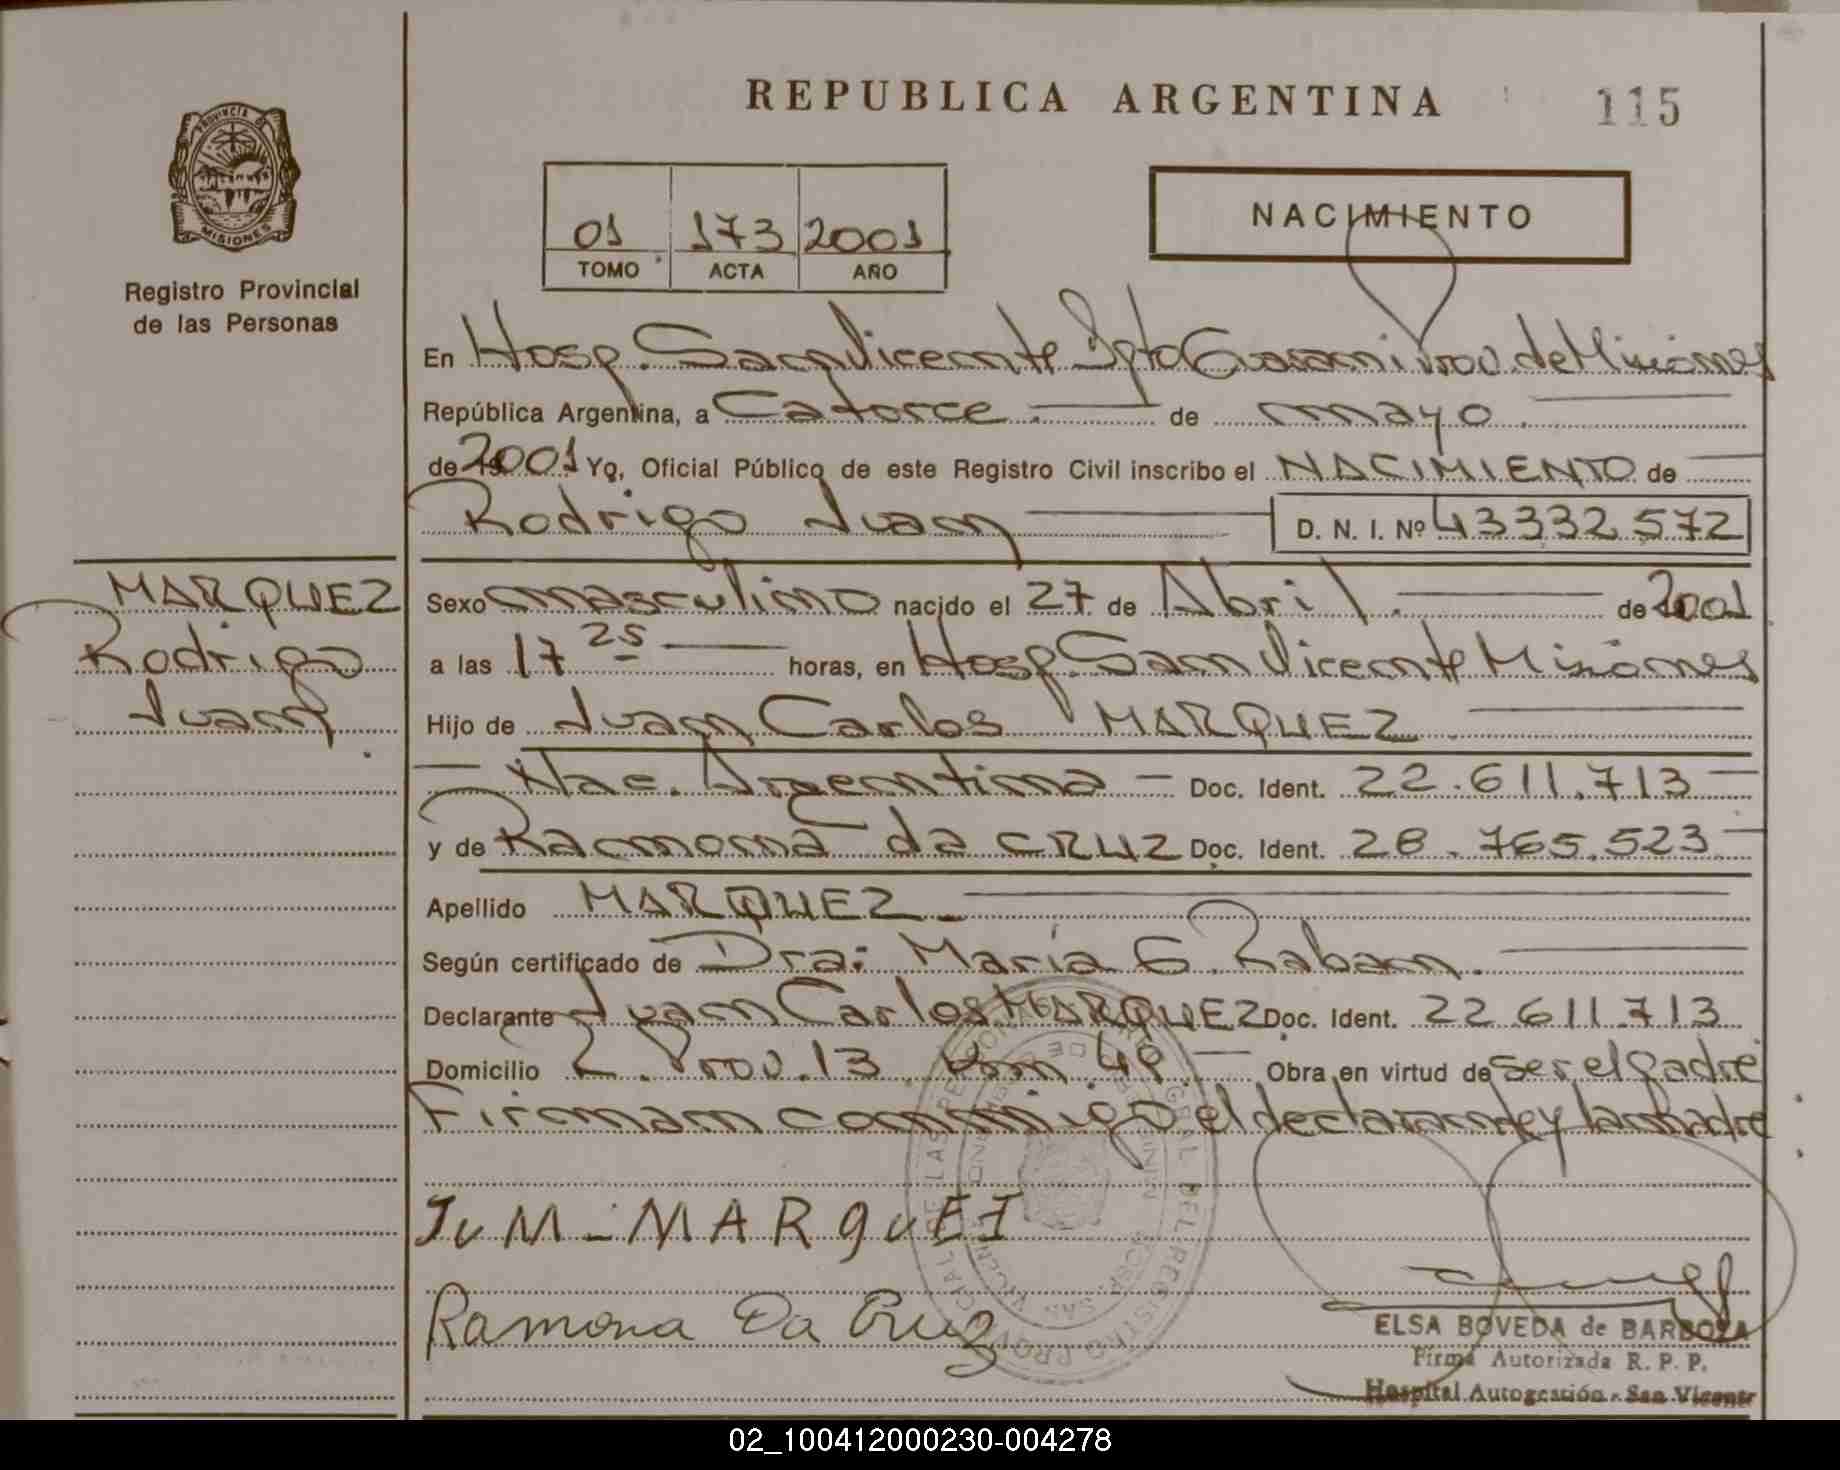 REPUBLICA ARGENTINA
115
PROVINCIA DE
MISIONES
Registro Provincial
de las Personas
01 173 2001
TOMO ACTA AÑO
NACIMIENTO
En Hosp. San Vicente Dpto Guarani Prov. de Misiones
República Argentina, a Catorce de mayo
de 2001 Yo, Oficial Público de este Registro Civil inscribo el NACIMIENTO de
Rodrigo Juan D. N. I. Nº 43332572
MARQUEZ
Rodrigo
Juan
Sexo masculino nacido el 27 de Abril de 2001
a las 17 25 horas, en Hosp. San Vicente Misiones
Hijo de Juan Carlos MARQUEZ
Nac. Argentina - Doc. Ident. 22.611.713
y de Ramona da CRUZ Doc. Ident. 28.765.523
Apellido MARQUEZ
Según certificado de Dra: María G. Raban.
Declarante Juan Carlos MARQUEZ Doc. Ident. 22.611.713
Domicilio R. Prov. 13 Km. 49 Obra en virtud de ser el padre
Firman conmigo el declarante y la madre
JUM-MARQUEZ
Ramona Da Cruz
ELSA BOVEDA de BARBOZA
Firma Autorizada R. P. P.
Hospital Autogestión - San Vicente
02_100412000230-004278